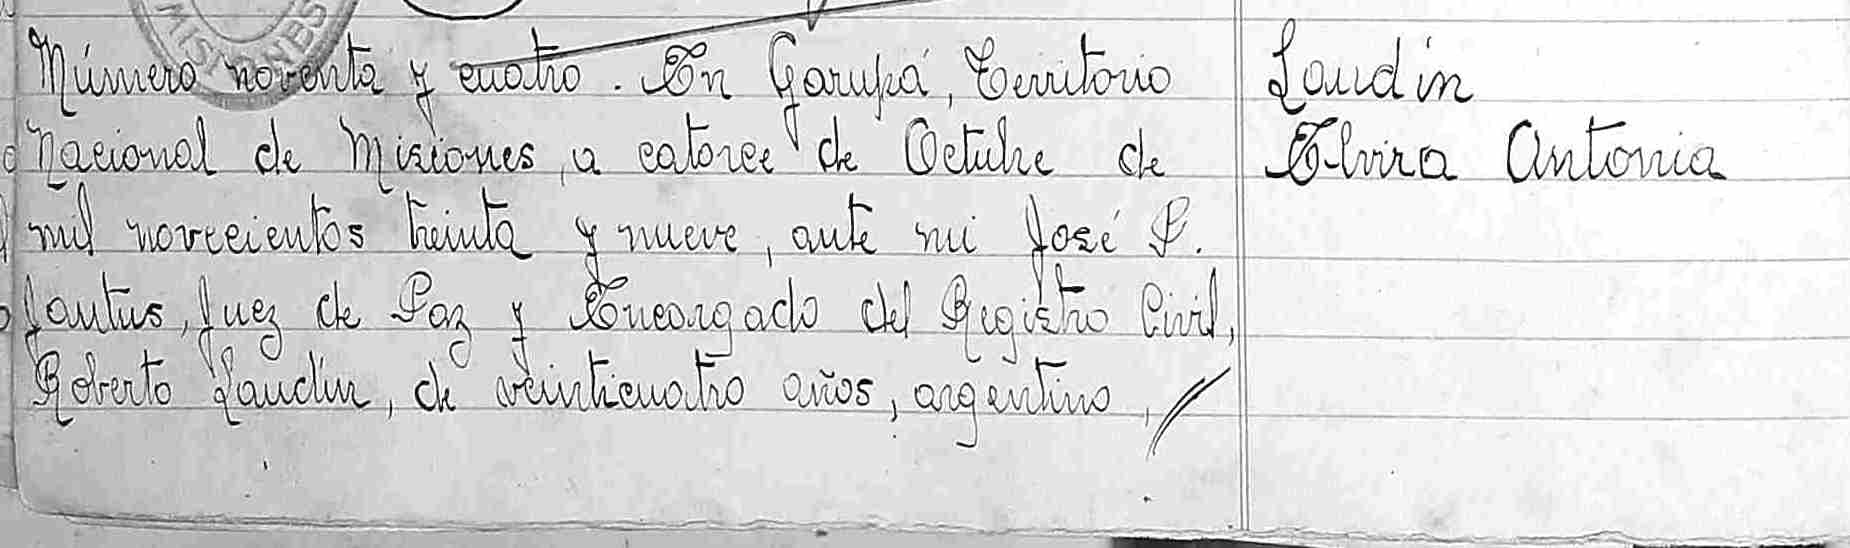 MISIONES
Número noventa y cuatro. En Garupá, Territorio
Nacional de Misiones, a catorce de Octubre de
mil novecientos treinta y nueve, ante mi José P.
Jantus, Juez de Paz y Encargado del Registro Civil,
Roberto Laudín, de veinticuatro años, argentino,
Laudín
Elvira Antonia